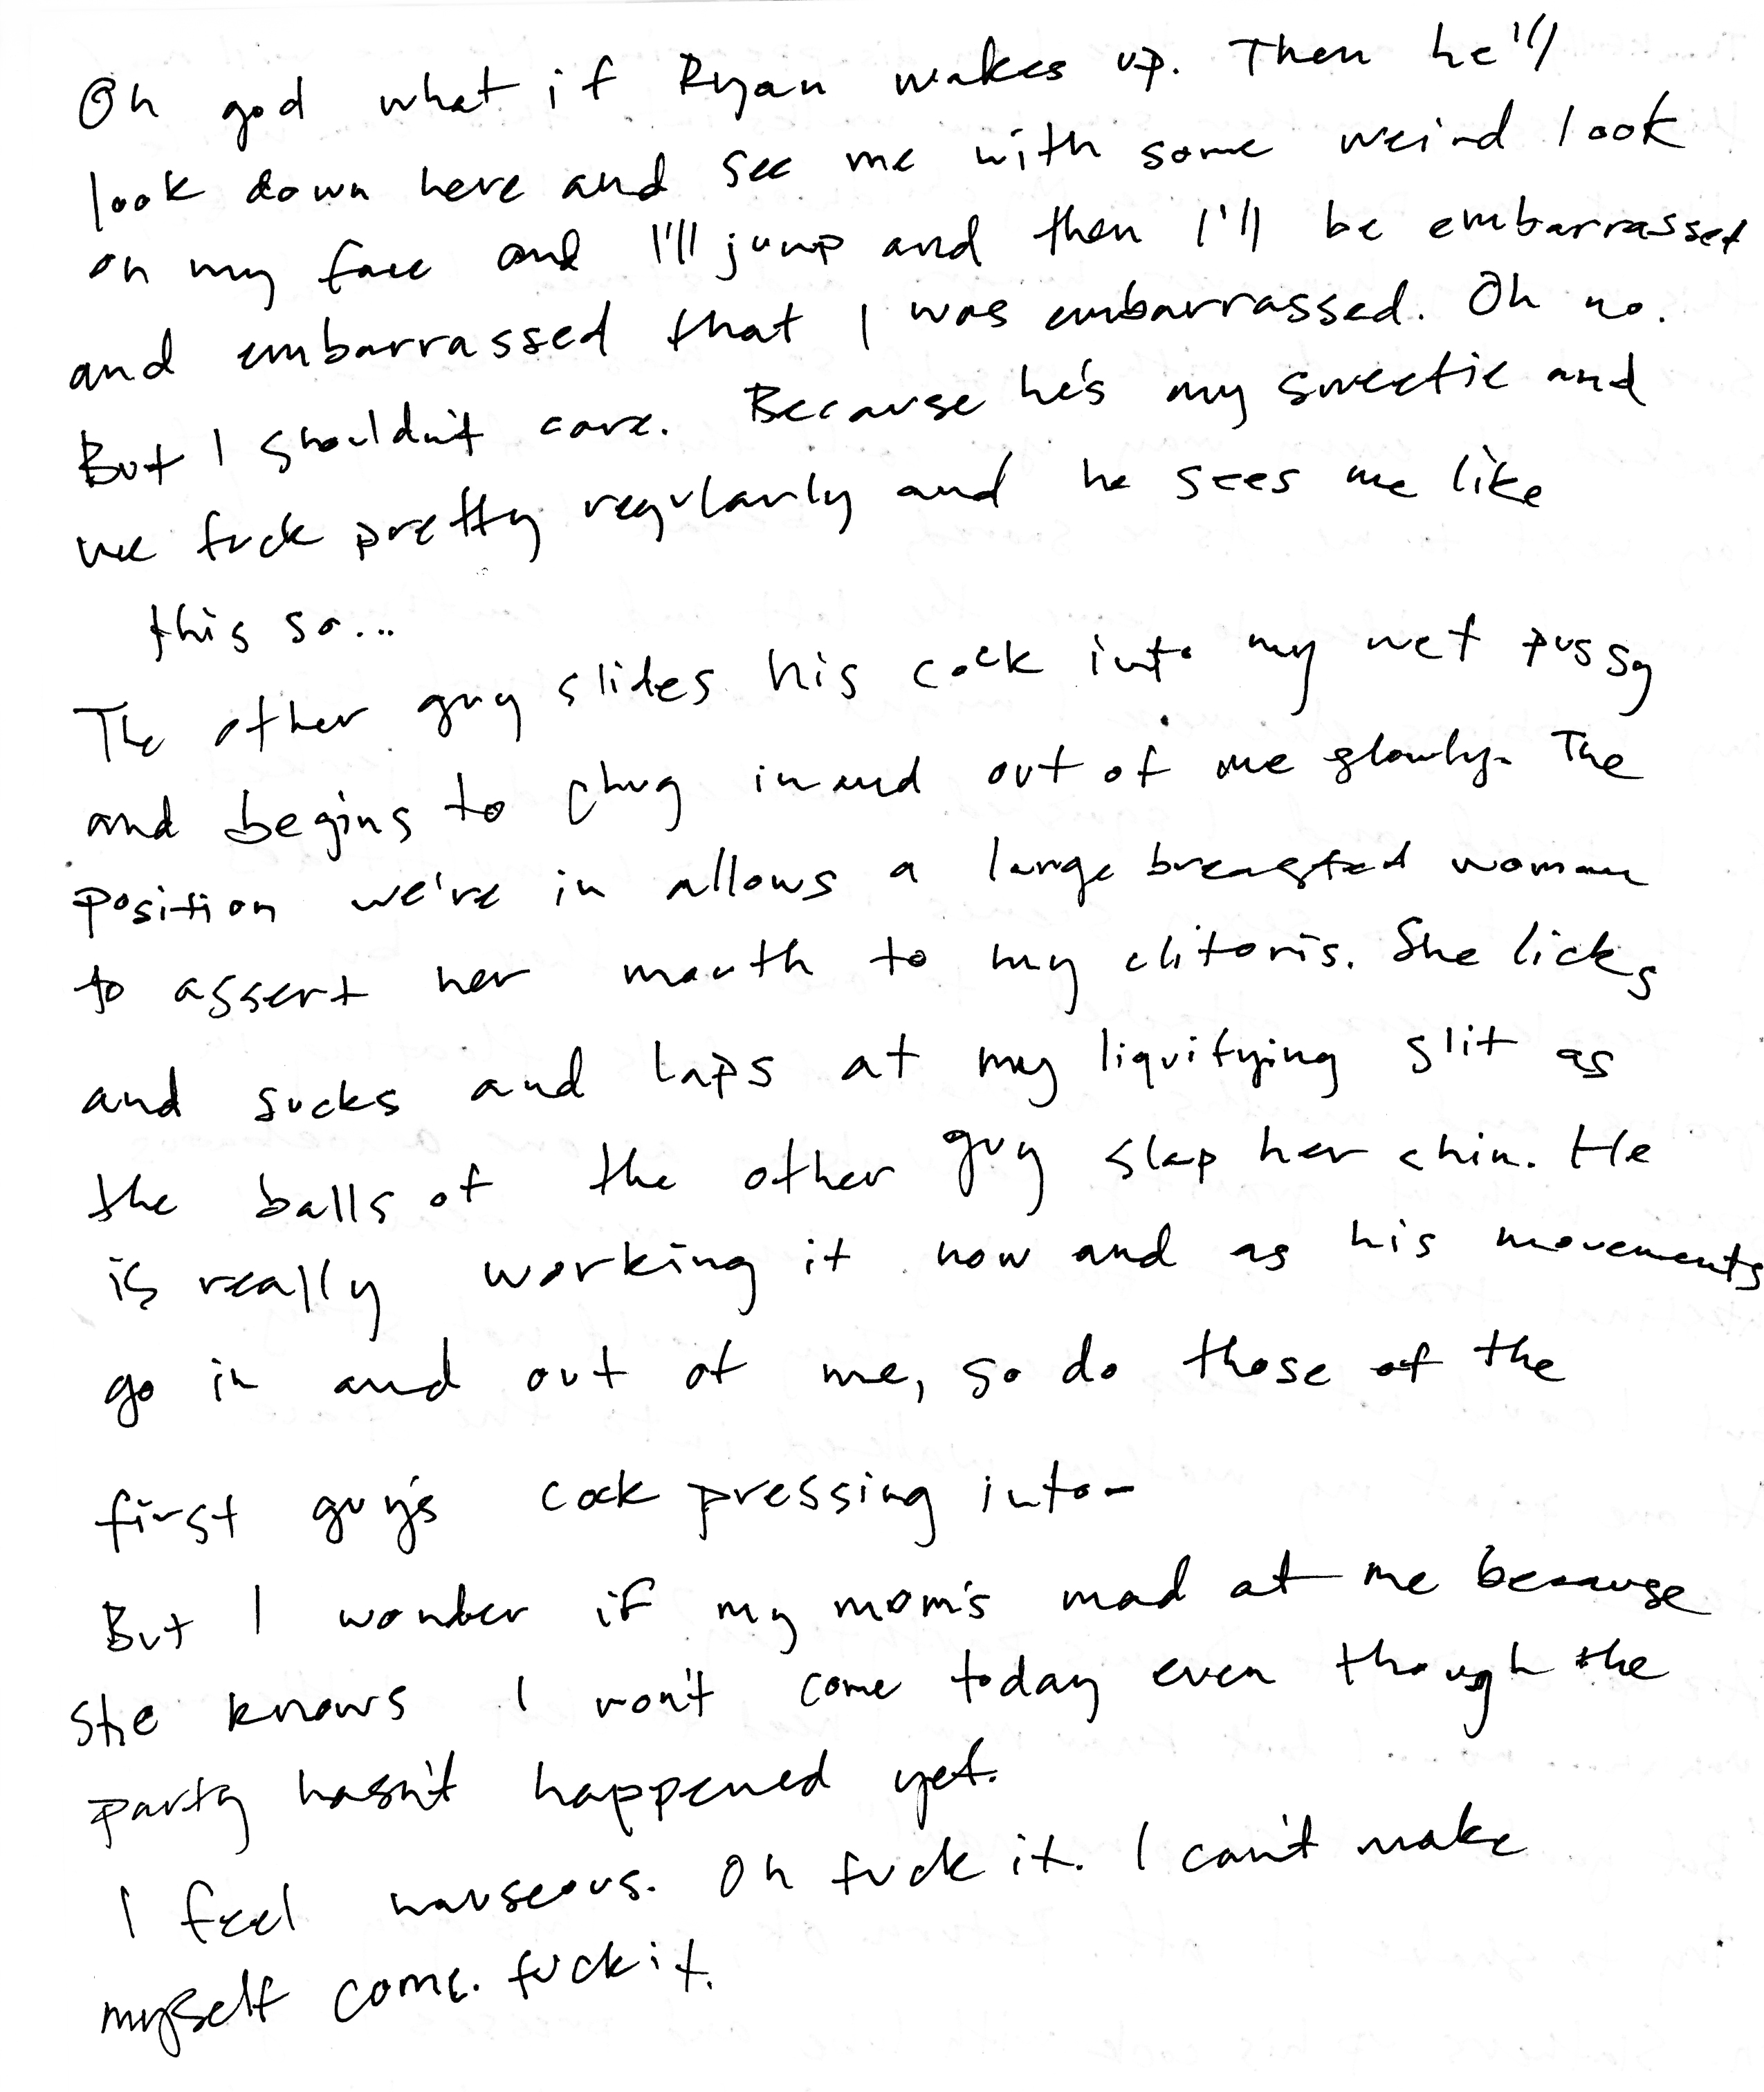 Oh god what if Ryan wakes up. Then he'll
look down here and see me with some weird look
on my face and I'll jump and then I'll be embarrassed
and embarrassed that I was embarrassed. Oh no.
But I shouldn't care. Because he's my sweetie and
we fuck pretty regularly and he sees me like
this so...
The other guy slides his cock into my wet pussy
and begins to chug in and out of me slowly. The
position we're in allows a large breasted woman
to assert her mouth to my clitoris. She licks
and sucks and laps at my liquifying slit as
the balls of the other guy slap her chin. He
is really working it now and as his movements
go in and out of me, so do those of the
first guy's cock pressing into-
But I wonder if my mom's mad at me because
she knows I won't come today even though the
party hasn't happened yet.
I feel nauseous. Oh fuck it. I can't make
myself come. fuck it.